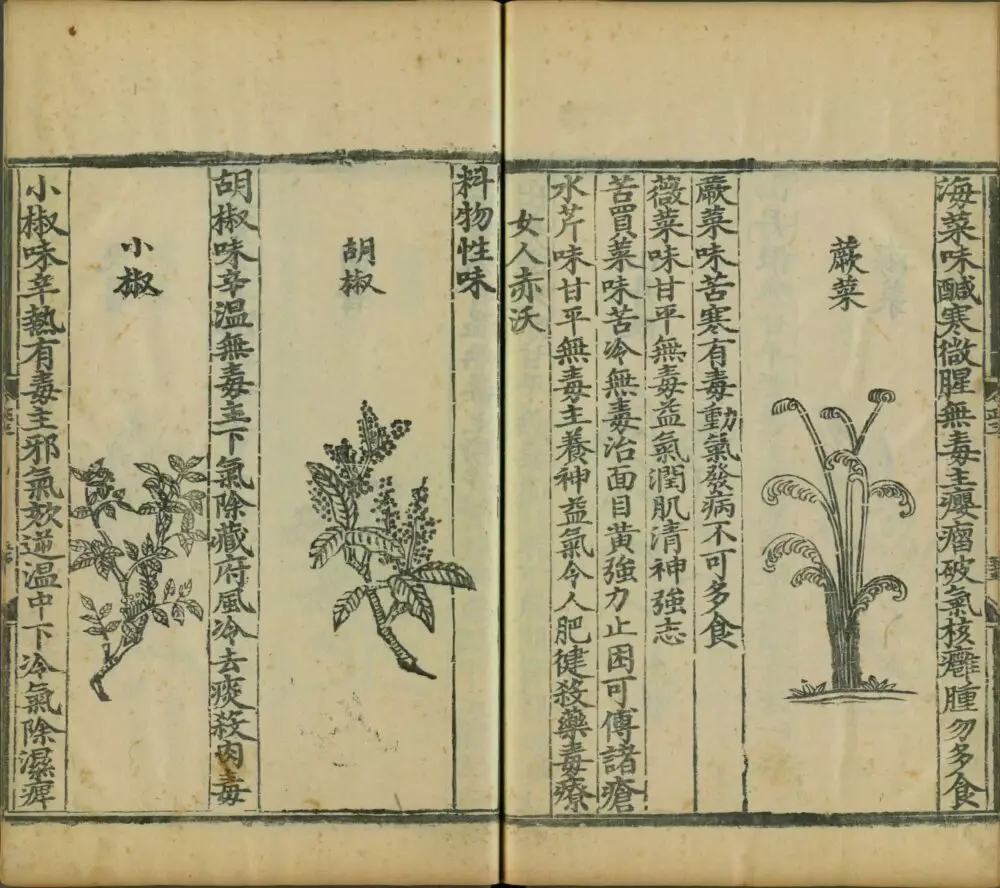 海菜味醎寒微腥無毒主癭瘤破氣核癰腫勿多食
蕨菜
蕨菜味苦寒有毒動氣發病不可多食
薇菜味甘平無毒益氣潤肌清神強志
苦買菜味苦冷無毒治面目黃強力止困可傅諸瘡
水芹味甘平無毒主養神益氣令人肥健殺藥毒療
女人赤沃
料物性味
胡椒
胡椒味辛溫無毒主下氣除藏府風冷去痰殺肉毒
小椒
小椒味辛熱有毒主邪氣欬逆溫中下冷氣除濕痺